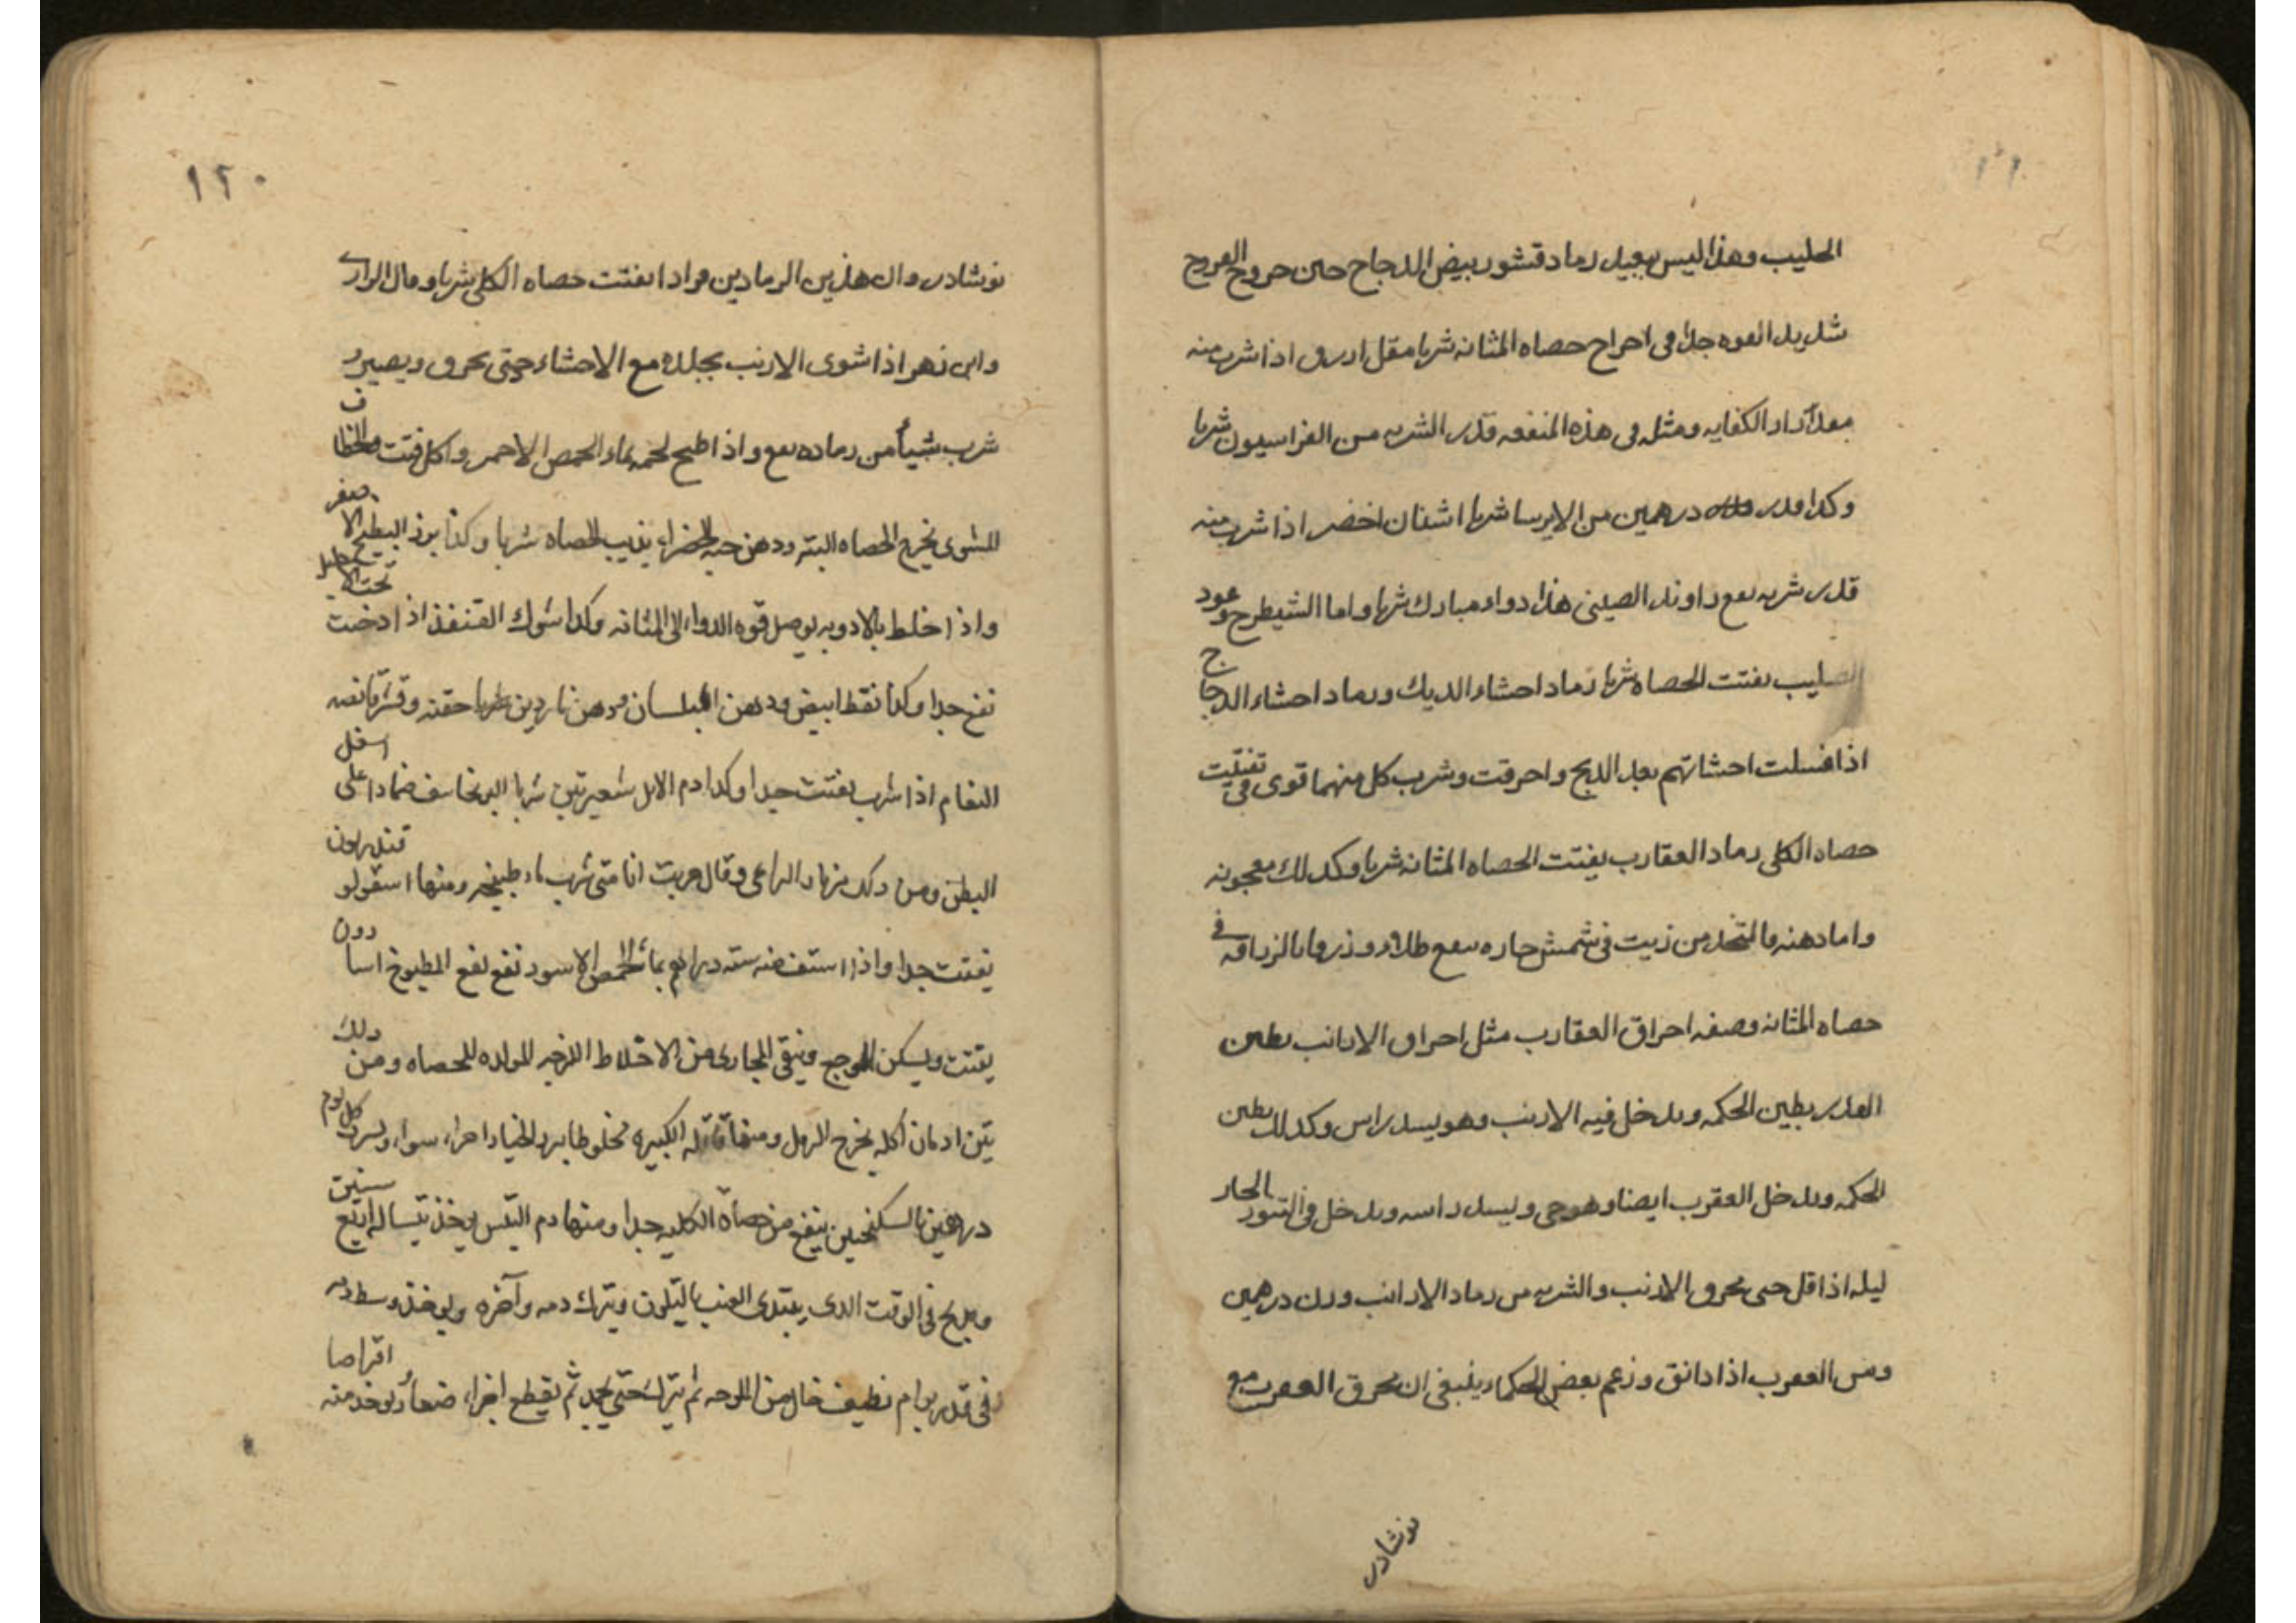 الحليب وهذا ليس ببعيد رماد قشور بيض الدجاج حين خروج الفروج
شديد القوه جدا فى اخراج حصاه المثانه شربا مقل ازرق اذا شرب منه
مقدار الكفايه ومثله فى هذه المنفعه قدر الشربه من الفراسيون شربا
وكذا قدر درهمين من الايرسا شربا اشنان اخضر اذا شرب منه
قدر شربه نفع راوند الصينى هذا دواء مبارك شربا واما الشيطرح وعود
الصليب يفتت الحصاه شربا رماد احشاء الديك ورماد احشاء الدجاج
اذا غسلت احشائهم بعد الذبح واحرقت وشرب كل منهما قوى فى تفتيت
حصاه الكلى رماد العقارب يفتت الحصاه المثانه شربا وكذلك معجونه
واما دهنه فالمتخذ من زيت فى شمش حاره ينفع طلاء وذروقا بالزراقه فى
حصاه المثانه وصفه احراق العقارب مثل احراق الارانب يطين
القدر بطين الحكمه ويدخل فيه الارنب وهو يسد راس وكذلك يطين
الحكمه ويدخل العقرب ايضا وهو حى ويسد راسه ويدخل فى التنور الحار
ليله اذا قل حتى يحرق الارنب والشربه من رماد الارانب وزن درهمين
ومن العقرب اذا دانق وزعم بعض الحكماء ينبغى ان يحرق العقرب مع
نوشادر
١٢٠
نوشادر وان هذين الرمادين فرادا يفتت حصاه الكلى شربا وقال الرازى
وابن زهر اذا شوى الارنب بجلده مع الاحشاء حتى يحرق ويصير و
شرب شيأ من رماده نفع واذا طبخ لحمه بماء الحمص الاحمر واكل فتت والخطاف
المشوى يخرج الحصاه البته ودهن حبه الخضراء يذيب الحصاه شربا وكذا بزر البطيخ الاصفر
واذا خلط بالادويه يوصل قوه الدواء الى المثانه وكذا شوك القنفذ اذا دخنت تحته الاحليل
نفع جدا وكذا نفط ابيض ودهن البلسان ودهن ناردين شربا حقنه وقشر قانصه
النعام اذا شرب يفتت جدا وكذا دم الايل شعيرتين شربا البرنجاسف ضمادا على اسفل
البطن ومن ذلك مزمار الراعى وقال جربت انا متى شرب ماء طبيخه ومنها اسقولوقندريون
يفتت جدا واذا استف منه سته دراهم بماء الحمص الاسود نفع نفع المطبوخ اسارون
يفتت ويسكن الوجع وينقى المجارى من الاخلاط اللزجه المولده للحصاه ومن ذلك
تين ادمان اكله يخرج الرمل ومنها قاقله الكبيره مخلوطا ببزر الخيار اجزاء سواء ويشرب كل يوم
درهمين بالسكنجبين ينفع من حصاة الكليه جدا ومنها دم التيس يوخذ تيسا له اربع سنين
ويذبح فى الوقت الذى يبتدى العنب بالتلون ويترك دمه وآخره ويوخذ وسط دمه
فى قدر برام نظيف خال من الملوحه ثم يترك حتى يجمد ثم يقطع اجزاء صغار يوخذ منه اقراصا